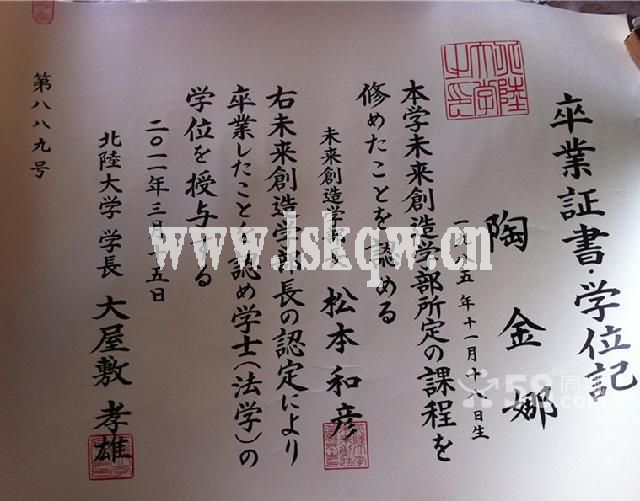 卒業証書・学位記
陶金娜
一九八五年十一月十八日生
本学未来創造学部所定の課程を
修めたことを認める
未来創造学部長 松本和彦
右未来創造学部長の認定により
卒業したことを認め学士(法学)の
学位を授与する
二〇一一年三月十五日
北陸大学 学長 大屋敷孝雄
第八八九号
北陸大学
www.jskqw.cn
58同城